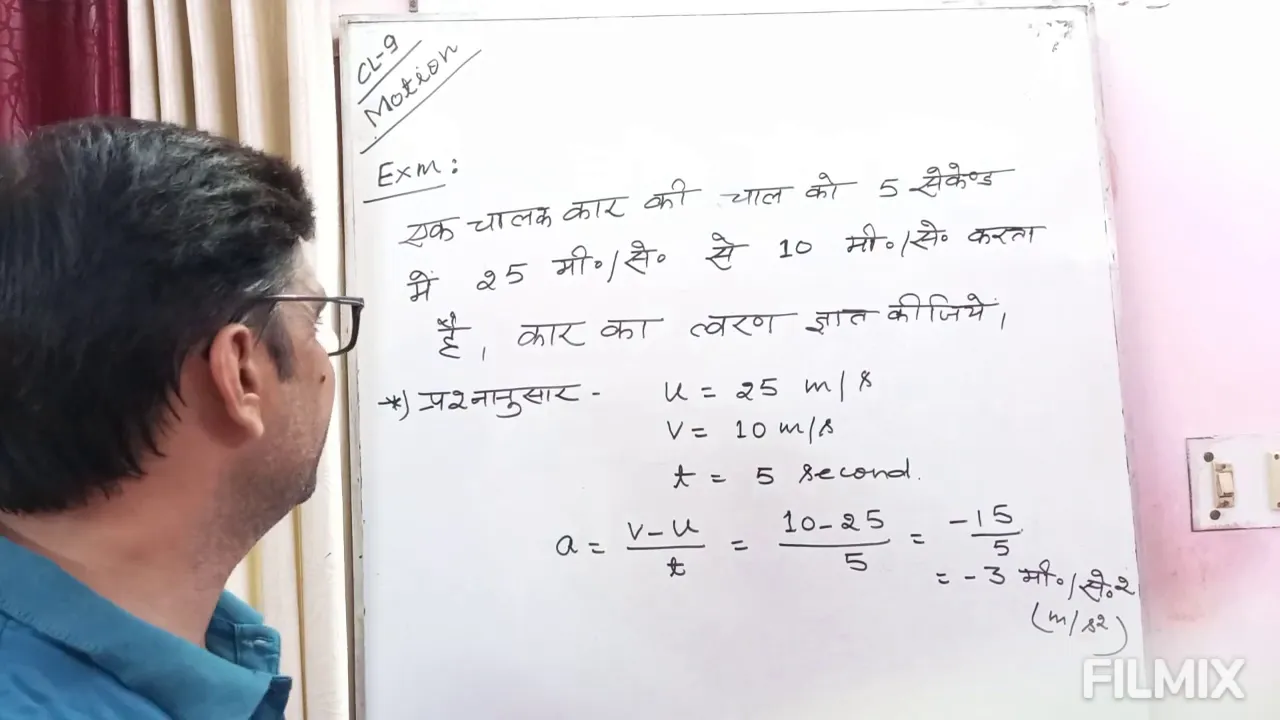 CL-9
Motion
Exm:
एक चालक कार की चाल को 5 सेकेण्ड
में 25 मी०/से० से 10 मी०/से० करता
है, कार का त्वरण ज्ञात कीजिये।
*) प्रश्नानुसार - u = 25 m/s
v = 10 m/s
t = 5 second.
a = v-u/t = 10-25/5 = -15/5
= -3 मी०/से०2
(m/s2)
FILMIX